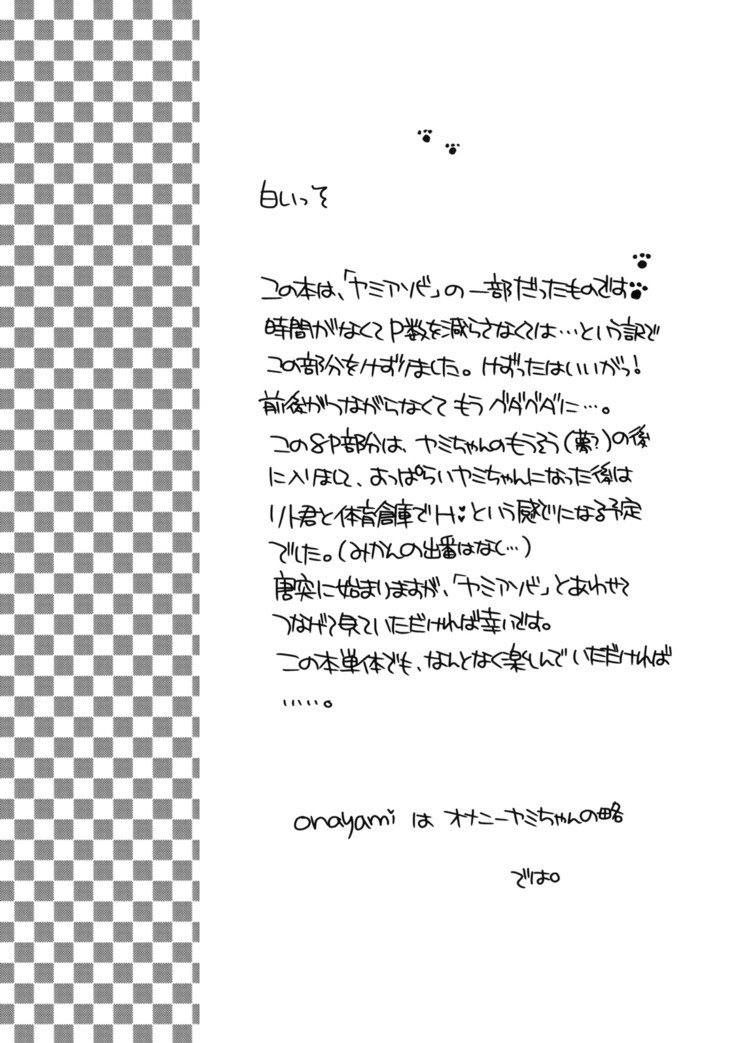 白いっそ
この本は、「ヤミアソビ」の一部だったものです
時間がなくてP数を減らさなくては…という訳で
この部分をけずりました。けずったはいいがっ!
前後がつながらなくてもうグダグダに…。
この8P部分は、ヤミちゃんのもうそう(夢?)の後
に入りまして、よっぱらいヤミちゃんになった後は
リト君と体育倉庫でH♥という感じになる予定
でした。(みかんの出番はなし…)
唐突に始まりますが、「ヤミアソビ」とあわせて
つなげて見ていただければ幸いです。
この本単体でも、なんとなく楽しんでいただければ
……。
onayamiはオナニーヤミちゃんの略
では。